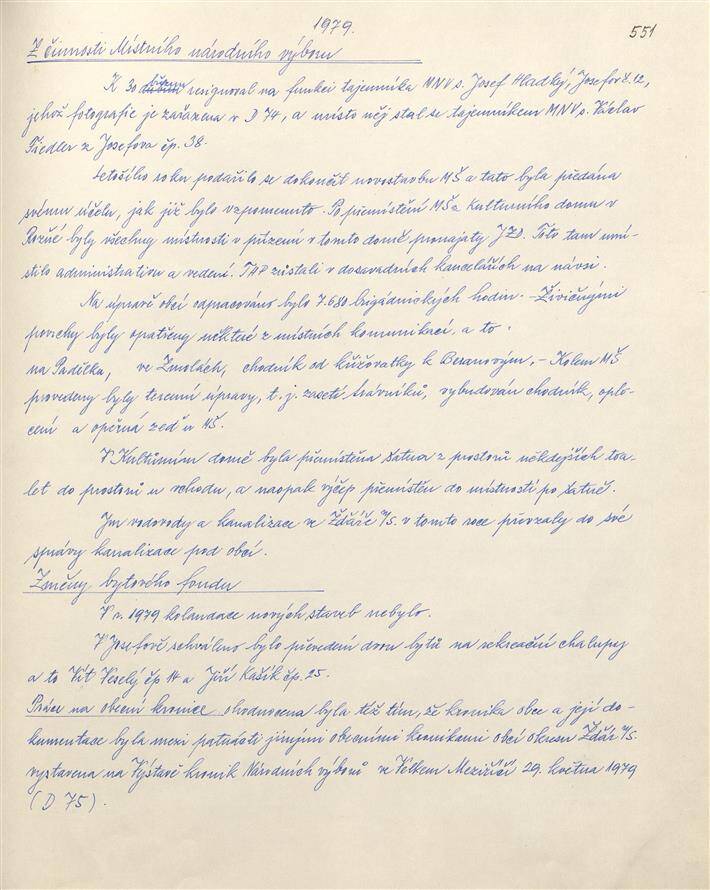 1979.
551
Z činnosti Místního národního výboru
K 30. březnu resignoval na funkci tajemníka MNV s. Josef Hladký, Josefov č. 12,
jehož fotografie je zařazena v D 74, a místo něj stal se tajemníkem MNV s. Václav
Fiedler z Josefova čp. 38.
Letošího roku podařilo se dokončit novostavbu MŠ a tato byla předána
svému účelu, jak již bylo vzpomenuto. Po přemístění MŠ z Kulturního domu v
Rožné byly všechny místnosti v přízemí v tomto domě pronajaty JZD. Toto tam umí-
stilo administrativu a vedení. THP zůstali v dosavadních kancelářích na návsi.
Na úpravě obcí odpracováno bylo 7.680 brigádnických hodin. - Živičnými
povrchy byly opatřeny některé z místních komunikací, a to.
na Padělka, ve Zmolách, chodník od křižovatky k Beranovým, - Kolem MŠ
provedeny byly terenní úpravy, t. j. zasetí trávníků, vybudován chodník, oplo-
cení a opěrná zeď u MŠ.
V Kulturním domě byla přemístěna šatna z prostorů někdejších toa-
let do prostorů u vchodu, a naopak výčep přemístěn do místností po šatně.
Jm vodovody a kanalizace ve Žďáře n/S. v tomto roce převzaly do své
správy kanalizace pod obcí.
Změny bytového fondu
V r. 1979 kolaudace nových staveb nebylo.
V Josefově schváleno bylo převedení dvou bytů na rekreační chalupy
a to Vít Veselý čp 14 a Jiří Kašík čp. 25.
Práce na obecní kronice ohodnocena byla též tím, že kronika obce a její do-
kumentace byla mezi patnácti jinými obecními kronikami obcí okresu Žďár n/S.
vystavena na Výstavě kronik Národních výborů ve Velkém Meziříčí 29. května 1979
(D 75).